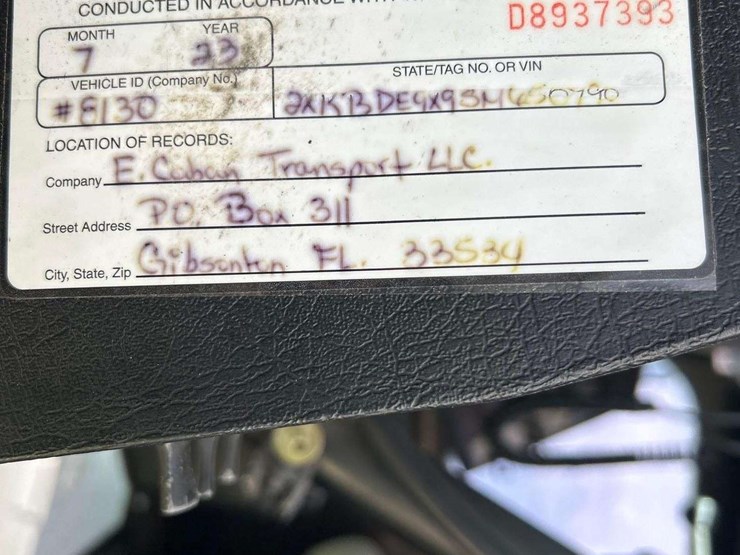 CONDUCTED IN ACCORDANCE
D8937393
MONTH YEAR
7 23
VEHICLE ID (Company No.) STATE/TAG NO. OR VIN
#E130
LOCATION OF RECORDS:
Company E. Caban Transport LLC.
Street Address P.O. Box 311
City, State, Zip Gibsonton FL. 33534